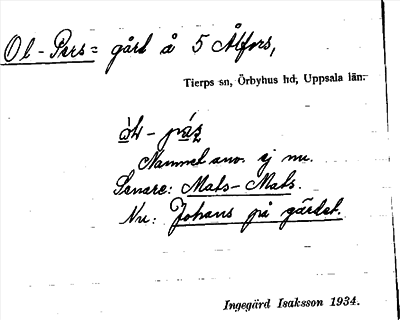 Ol-Pers= gård å 5 Ålfors,
Tierps sn, Örbyhus hd, Uppsala län.
Namnet anv. ej nu.
Senare: Mats-Mats.
Nu: Johans på gärdet.
Ingegärd Isaksson 1934.